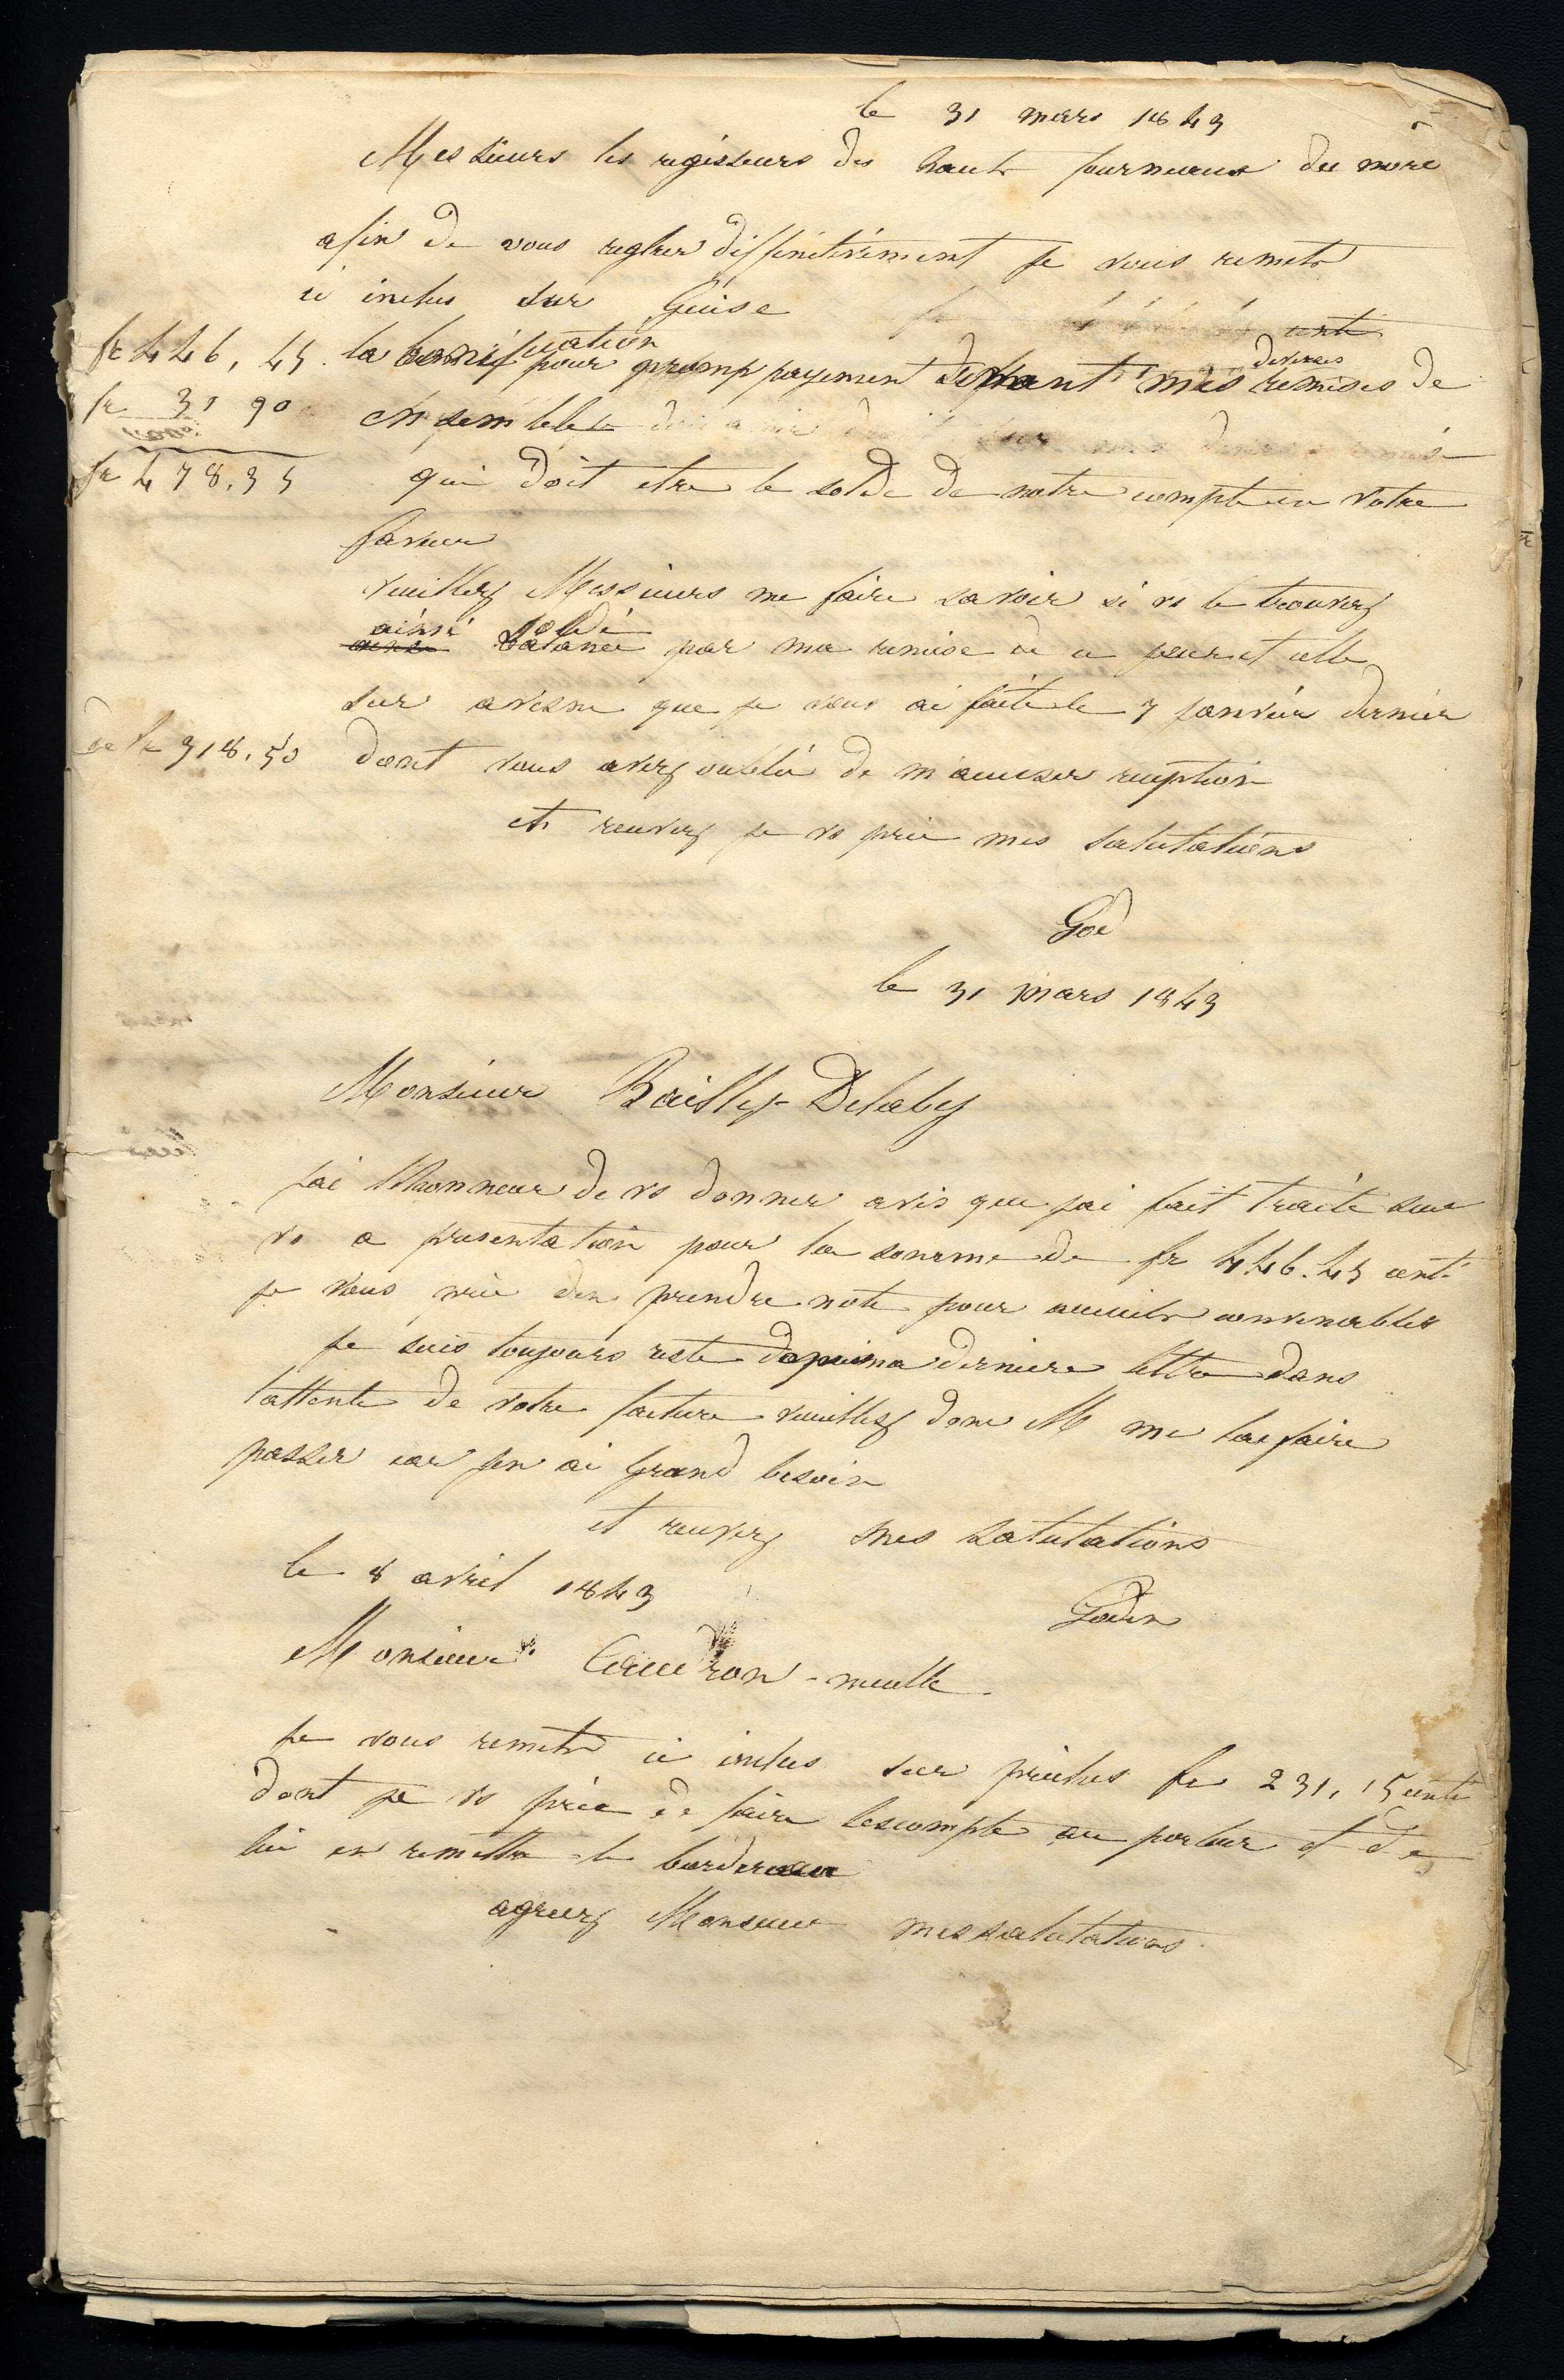 le 31 mars 1843
Messieurs les regisseurs des hauts fourneaux du nord
afin de vous regler diffinitivement je vous remets
ci inclus sur Guise
cent
fr 446, 45 la bonification pour promp payement suivant mes diverses remises de
fr 31 90 ensemble
fr 478,35 qui doit etre le solde de notre compte en votre
faveur
veuillez Messieurs me faire savoir si vs le trouvez
ainsi soldé par ma remise de ce jour et celle
sur avesne que je vous ai faite le 7 janvier dernier
de fr 318,50 dont vous avez oublié de m'accuser reception
et recevez je vs prie mes salutations
God
le 31 mars 1843
Monsieur Bailly-Delaby
jai lhonneur de vs donner avis que jai fait traite sur
vs a presentation pour la somme de fr 446.45 cent
je vous prie den prendre note pour accueils convenables
je suis toujours resté depuis ma derniere lettre dans
lattente de votre facture veuillez donc M me la faire
passer car jen ai grand besoin
et recevez mes salutations
Godin
le 8 avril 1843
Monsieur
je vous remets ci inclus sur fr 231,15 cent
dont je vs prie de faire lescompte au porteur et de
lui en remettre le bordereau
agreez Monsieur mes salutations